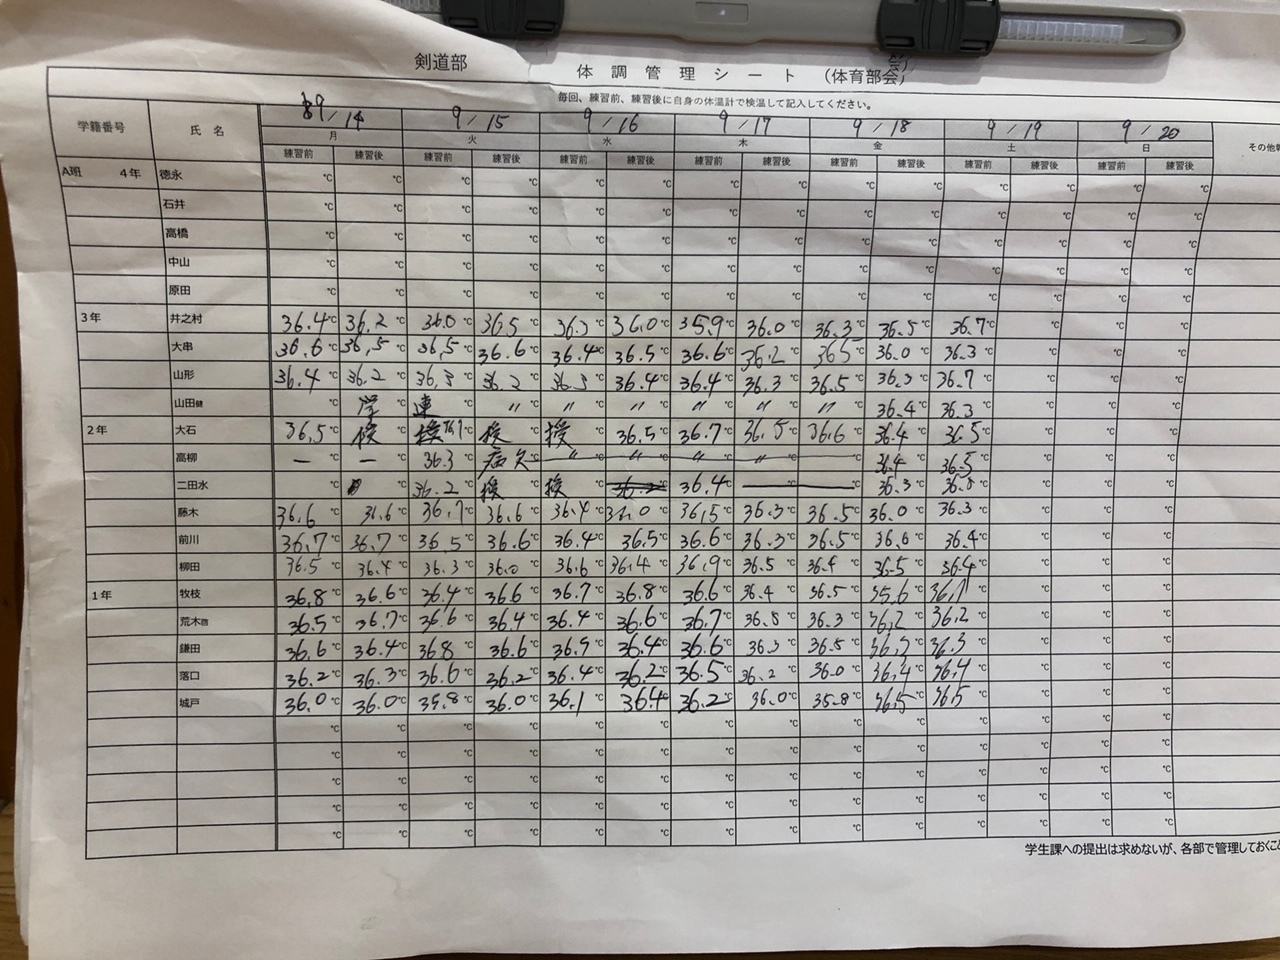 剣道部
体調管理シート (体育部会)
毎回、練習前、練習後に自身の体温計で検温して記入してください。
学籍番号 氏名 9/14 9/15 9/16 9/17 9/18 9/19 9/20 その他
月 火 水 木 金 土 日
練習前 練習後 練習前 練習後 練習前 練習後 練習前 練習後 練習前 練習後 練習前 練習後 練習前 練習後
A班 4年 徳永 ℃ ℃ ℃ ℃ ℃ ℃ ℃ ℃ ℃ ℃ ℃ ℃ ℃ ℃
石井 ℃ ℃ ℃ ℃ ℃ ℃ ℃ ℃ ℃ ℃ ℃ ℃ ℃ ℃
高橋 ℃ ℃ ℃ ℃ ℃ ℃ ℃ ℃ ℃ ℃ ℃ ℃ ℃ ℃
中山 ℃ ℃ ℃ ℃ ℃ ℃ ℃ ℃ ℃ ℃ ℃ ℃ ℃ ℃
原田 ℃ ℃ ℃ ℃ ℃ ℃ ℃ ℃ ℃ ℃ ℃ ℃ ℃ ℃
3年 井之村 36.4℃ 36.2℃ 36.0℃ 36.5℃ 36.3℃ 36.0℃ 35.9℃ 36.0℃ 36.3℃ 36.5℃ 36.7℃ ℃ ℃ ℃
大串 36.6℃ 36.5℃ 36.5℃ 36.6℃ 36.4℃ 36.5℃ 36.6℃ 36.2℃ 36.5℃ 36.0℃ 36.3℃ ℃ ℃ ℃
山形 36.4℃ 36.2℃ 36.3℃ 36.2℃ 36.3℃ 36.4℃ 36.4℃ 36.3℃ 36.5℃ 36.3℃ 36.7℃ ℃ ℃ ℃
山田健 ℃ 学℃ 連℃ 〃℃ 〃℃ 〃℃ 〃℃ 〃℃ 〃℃ 36.4℃ 36.3℃ ℃ ℃ ℃
2年 大石 36.5℃ ℃ ℃ ℃ ℃ 36.5℃ 36.7℃ 36.5℃ 36.6℃ 36.4℃ 36.5℃ ℃ ℃ ℃
高柳 ー℃ ー℃ 36.3℃ 病欠℃ 〃℃ 〃℃ 〃℃ 〃℃ ℃ 36.4℃ 36.5℃ ℃ ℃ ℃
二田水 ℃ ℃ 36.2℃ ℃ ℃ ℃ 36.4℃ ー℃ ー℃ 36.3℃ ℃ ℃ ℃ ℃
藤木 36.6℃ 36.6℃ 36.7℃ 36.6℃ 36.4℃ 36.0℃ 36.5℃ 36.3℃ 36.5℃ 36.0℃ 36.3℃ ℃ ℃ ℃
前川 36.7℃ 36.7℃ 36.5℃ 36.6℃ 36.4℃ 36.5℃ 36.6℃ 36.3℃ 36.5℃ 36.6℃ 36.4℃ ℃ ℃ ℃
柳田 36.5℃ 36.4℃ 36.3℃ 36.0℃ 36.6℃ 36.4℃ 36.9℃ 36.5℃ 36.4℃ 36.5℃ 36.4℃ ℃ ℃ ℃
1年 牧枝 36.8℃ 36.6℃ 36.4℃ 36.6℃ 36.7℃ 36.8℃ 36.6℃ 36.4℃ 36.5℃ 35.6℃ 36.7℃ ℃ ℃ ℃
荒木 36.5℃ 36.7℃ 36.6℃ 36.4℃ 36.4℃ 36.6℃ 36.7℃ 36.8℃ 36.3℃ 36.2℃ 36.2℃ ℃ ℃ ℃
鎌田 36.6℃ 36.4℃ 36.8℃ 36.6℃ 36.5℃ 36.4℃ 36.6℃ 36.3℃ 36.5℃ 36.3℃ 36.3℃ ℃ ℃ ℃
落口 36.2℃ 36.3℃ 36.6℃ 36.2℃ 36.4℃ 36.2℃ 36.5℃ 36.2℃ 36.0℃ 36.4℃ 36.4℃ ℃ ℃ ℃
城戸 36.0℃ 36.0℃ 35.8℃ 36.0℃ 36.1℃ 36.4℃ 36.2℃ 36.0℃ 35.8℃ 36.5℃ 36.5℃ ℃ ℃ ℃
℃ ℃ ℃ ℃ ℃ ℃ ℃ ℃ ℃ ℃ ℃ ℃ ℃ ℃
℃ ℃ ℃ ℃ ℃ ℃ ℃ ℃ ℃ ℃ ℃ ℃ ℃ ℃
℃ ℃ ℃ ℃ ℃ ℃ ℃ ℃ ℃ ℃ ℃ ℃ ℃ ℃
℃ ℃ ℃ ℃ ℃ ℃ ℃ ℃ ℃ ℃ ℃ ℃ ℃ ℃
℃ ℃ ℃ ℃ ℃ ℃ ℃ ℃ ℃ ℃ ℃ ℃ ℃ ℃
学生課への提出は求めないが、各部で管理しておくこと